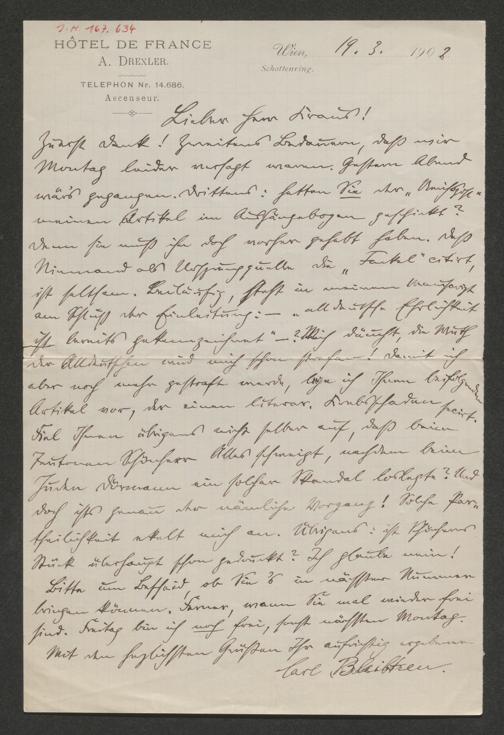 J.N. 167.634
HÔTEL DE FRANCE
A. DREXLER.
TELEPHON Nr. 14.686.
Ascenseur.
Wien, 19. 3. 1902
Schottenring.
Lieber Herr Kraus!
Zuerst Dank! Zweitens Bedauern, daß wir
Montag leider versagt waren. Gestern Abend
wärs gegangen. Drittens: hatten Sie der
meinen Artikel im Aushängebogen geschickt?
Denn sie muß ihn doch vorher gehabt haben. Daß
Niemand als Ursprungquelle die „Fackel" citirt,
ist seltsam. Beiläufig, steht in meinem
am Schluß der Einleitung: — „alldeutsche Ehrlichkeit
ist bereits gekennzeichnet" — ? Mich däucht, die Wuth
der Alldeutschen wird mich schon strafen —! Damit ich
aber noch mehr gestraft werde, lege ich Ihnen beifolgenden
Artikel vor, der einen literar. Krebsschaden
Fiel Ihnen übrigens nicht selber auf, daß beim
Teutonen Schönherr Alles schweigt, nachdem beim
Juden Dörmann ein solcher Skandal loslegte? Und
doch ists genau der nämliche Vorgang! Solche Par-
theilichkeit ekelt mich an. Übrigens: ist Schönherrs
Stück überhaupt schon gedruckt? Ich glaube nein!
Bitte um Bescheid, ob Sie's in nächster Nummer
bringen können. Ferner, wann Sie mal wieder frei
sind. Freitag bin ich noch frei, sonst nächsten Montag.
Mit den herzlichsten Grüßen Ihr aufrichtig ergebener
Carl Bleibtreu.